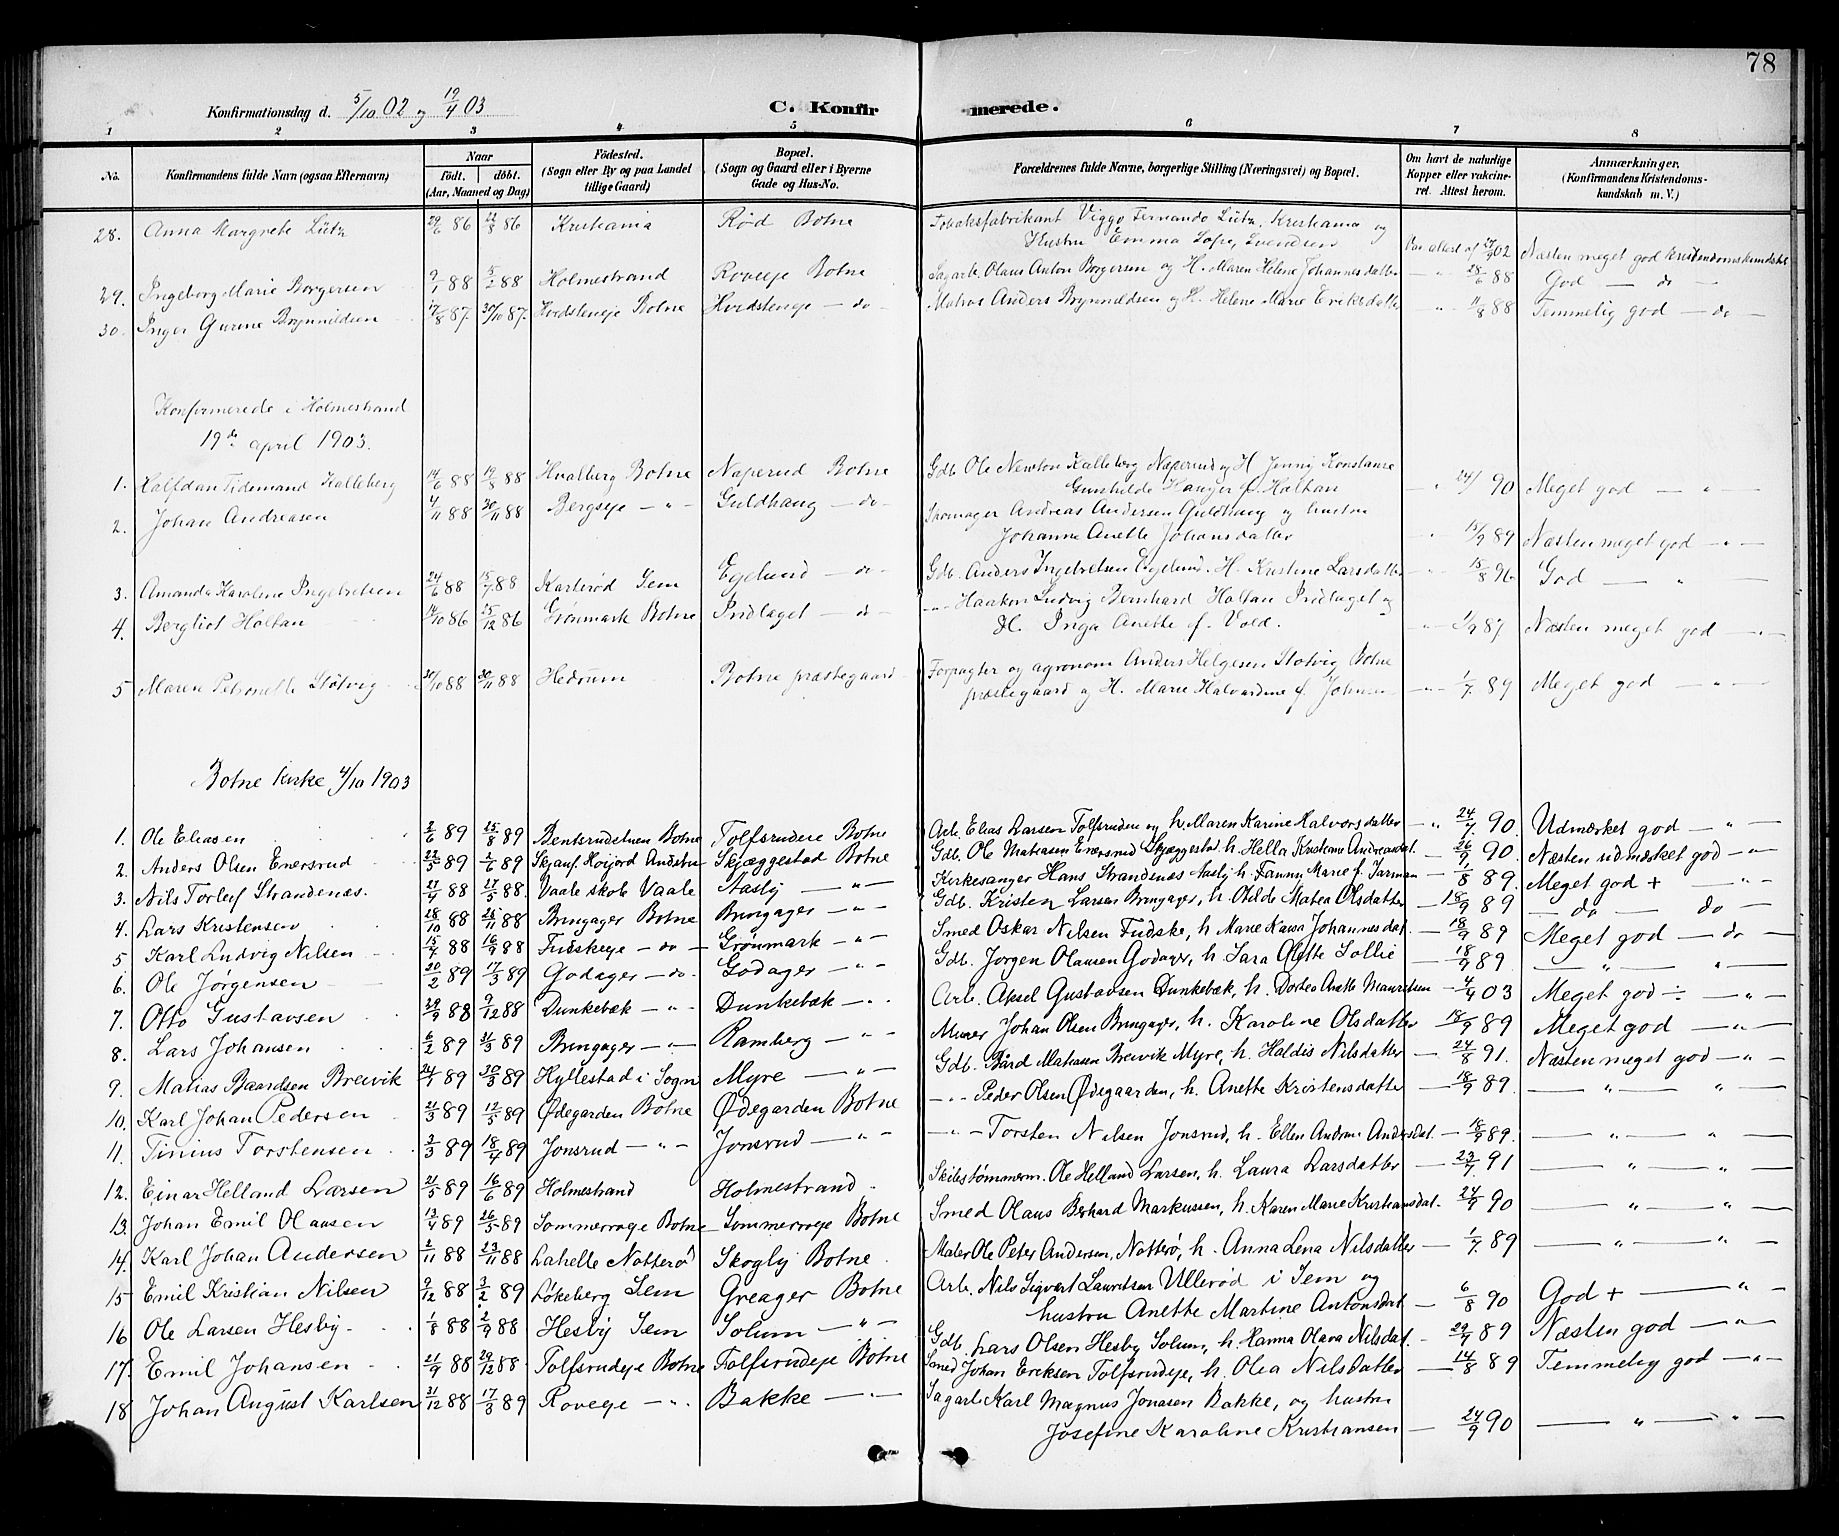 78
Konfirmationsdag d. 5/10 02 og 19/4 03 C. Konfirmerede.
1 2 3 4 5 6 7 8
No. Konfirmandens fulde Navn (ogsaa Efternavn) Naar født. døbt. (Aar, Maaned og Dag) Fødested. (Sogn eller By og paa Landet tillige Gaard) Bopæl. (Sogn og Gaard eller i Byerne Gade og Hus-No. Forældrenes fulde Navne, borgerlige Stilling (Næringsvei) og Bopæl. Om havt de naturlige Kopper eller vakcineret. Attest herom. Anmærkninger. (Konfirmandens Kristendomskundskab m. V.)
28. Anna Margrete Lütz 29/6 86 22/8 86 Kristiania Rød Botne Tobaksfabrikant Viggo Fernando Lütz, Kristiania og
Hustru Emma Sofie Svendsen Vac. attest af 27/9 02 Næsten meget god kristendomskundskab
29. Ingeborg Marie Borgersen 9/1 88 5/2 88 Holmestrand Roveie Botne Sagarb. Olaus Anton Borgersen og H. Maren Helene Johannesdatter - " - 28/6 88 God - do -
30. Inger Gurine Brynnildsen 17/8 87. 30/10 87. Kvedsteneje Botne Hvedsteneje - do Matros Anders Brynnildsen og H. Helene Marie Eriksdatter " - 11/8 88 Temmelig god - do -
Konfirmerede i Holmestrand
19de april 1903.
1. Halfdan Tidemand Kalleberg 14/6 88 19/8 88 Hvalberg Botne Naperud Botne Gdb. Ole Newton Kalleberg Naperud og H. Jenny Konstanse
Gunhilde Hanger f. Holtan - " 24/ 90 Meget god - " -
2. Johan Andreasen 4/11 88 30/11 88 Bergseje - " - Guldhaug - do - Skomager Andreas Andersen Guldhaug og hustru
Johanne Anette Johansdatter " 15/9 89 Næsten meget god - " -
3. Amanda Karoline Ingebretsen 24/6 88 15/7 88 Karterød Sem Egelund - do - Gdb. Anders Ingebretsen Egelund. H. Kristine Larsdatter - " - 15/8 96 God - " -
4. Bergliot Holtan 14/10 86 25/12 86 Grønmark Botne Prestlaget - do - - " - Haakon Ludvig Bernhard Holtan Prestlaget og
H. Inga Anette f. Vold. - " - 1/9 87 Næsten meget god - " -
5 Maren Petronelle Slotvig 31/10 88 30/11 88 Hedrum Botne præstegaard Forpagter og agronom Anders Helgesen Slotvig Botne
præstegaard og H. Marie Halvardine f. Johnsen - " - 1/7 89 Meget god - " -
Botne kirke 4/10 1903
1. Ole Eliasen 2/6 89 25/8 89 Bentsrudstuen Botne Tolfsrudeie Botne Arb. Elias Larsen Tolfsruden og h. Maren Karine Halvorsdatter - " 24/7 90. Udmærket god - " -
2. Anders Olsen Enersrud 22/5 89 2/6 89 Skjauf Hoijord Andebu Skjæggestad Botne Gdb. Ole Matiasen Enersrud Skjæggestad. h. Hella Kristiane Andreasdat. - 26/9 90. Næsten udmærket god - " -
3. Nils Torleif Strandenæs. 21/4 88 27/5 88. Vaale skole Vaale Aasly - " - Kirkesanger Hans Strandenæs Aasly h. Fanny Marie f. Jarman - 1/8 89. Meget god + - " -
4. Lars Kristensen 28/10 88 25/11 88 Bringager Botne Bringager - " - Gdb. Kristen Larsen Bringager, h. Otilde Matea Olsdatter - 18/9 89 - do - do -
5 Karl Ludvig Nilsen 15/7 88 16/9 88 Fudskeje - do - Grønmark - " - Smed Oskar Nilsen Fudske, h Marie Kaisa Johannesdat. - 18/9 89 Meget god - do -
6. Ole Jørgensen 20/2 89 17/3 89 Godager - do - Godager - " - Gdb. Jørgen Olausen Godager, h. Sara Olette Sollie - 18/9 89 - " - " -
7. Otto Gustavsen 29/9 88 9/12 88 Dunkebæk - " - Dunkebæk - " - Arb. Aksel Gustavsen Dunkebæk, h. Dortea Anette Mauritsen - 4/9 03 Meget god ÷ - " -
8. Lars Johansen 6/2 89 31/3 89 Bringager - " - Ramberg - " - Murer Johan Olsen Bringager, h. Karoline Olsdatter - 18/9 89 Meget god - " -
9. Matias Baardsen Breivik 24/1 89 20/3 89 Hyllestad i Sogn Myre - " - Gdb. Bård Matiasen Breivik Myre, h. Haldis Nilsdatter - 24/8 91. Næsten meget god - " -
10. Karl Johan Pedersen 21/3 89 12/5 89 Ødegarden Botne Ødegarden Botne - " - Peder Olsen Ødegaarden, h. Anette Kristensdatter - 18/9 89. - " - " -
11. Tinius Torstensen 3/3 89 18/4 89 Jonsrud - " - Jonsrud - " - - " - Torsten Nilsen Jonsrud, h. Ellen Andrine Andersdat. - 18/9 89. - " - " -
12. Einar Helland Larsen 21/5 89 16/6 89 Holmestrand Holmestrand. Skibstømmerm. Ole Helland Larsen, h. Laura Larsdatter - 23/7 91 - " - " -
13. Johan Emil Olausen 13/4 89 26/5 89 Sommerroge Botne Sommerroge Botne Smed Olaus Berhard Markussen, h. Karen Marie Kristiansdat. - 24/9 90 - " - " -
14. Karl Johan Andersen 2/11 88 23/11 88 Lahelle Nøtterø Skogly Botne Maler Ole Peter Andersen, Nøtterø, h. Anna Lena Nilsdatter - 1/7 89 - " - " -
15 Emil Kristian Nilsen 9/12 88 3/2 89 Løkeberg Sem Greager Botne Arb. Nils Sigvart Lauritsen Ullerød i Sem og
hustru Anette Martine Antonsdat. - 6/8 90 God + - " -
16 Ole Larsen Hesby 1/8 88 2/9 88 Hesby Sem Solum - " - Gdb. Lars Olsen Hesby Solum, h. Hanna Olava Nilsdat. - 29/7 89 Næsten god - " -
17. Emil Johansen 21/9 88 29/12 88 Tolfsrudeje Botne Tolfsrudeje Botne Smed Johan Eriksen Tolfsrudeje, h. Olea Nilsdatter - 14/8 89 Temmelig god - " -
18 Johan August Karlsen 31/12 88 17/3 89 Roveje - " - Bakke - " - Sagarb. Karl Magnus Jonasen Bakke, og hustru
Josefine Karoline Kristiansen - 24/9 90 - " - " -